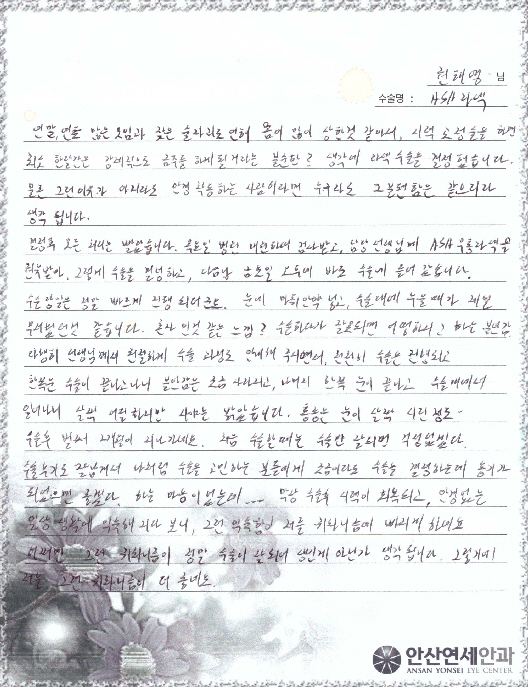 현태영 님
수술명 : ASA라섹
연말, 연초 잦은 모임과 잦은 술자리로 인해 몸이 많이 상한것 같아서, 시력 교정술을 하면
최소 한달간은 강제적으로 금주를 하게 될거라는 불순한? 생각에 라섹수술을 결정 했습니다.
물론 그런 이유가 아니라도 안경 착용하는 사람이라면 누구라도 그 불편함은 같으리라
생각 됩니다.
결정후 모든 과정은 빨랐습니다. 목요일 병원 내원하여 검사받고, 담당선생님께 ASA 무통라섹을
권유받아, 그렇게 수술을 결정하고, 다음날 금요일 오후에 바로 수술에 들어 갔습니다.
수술 당일은 정말 빠르게 진행 되더군요. 눈에 마취안약 넣고, 수술대에 누울때가 제일
무서웠던것 같습니다. 혼자 인것 같은 느낌? 수술하다가 잘못되면 어떻하지? 하는 불안감
다행히 선생님께서 친절하게 수술 과정도 안내해 주시면서, 천천히 수술은 진행되고
한쪽눈 수술이 끝나고나니 불안감은 조금 사라지고, 나머지 한쪽 눈이 끝나고 수술대에서
일어나니 살짝 어질하지만 시야는 밝았습니다. 통증은 눈이 살짝 시린 정도~
수술후 벌써 개월이 지나가네요. 처음 수술할때는 수술만 잘되면
수술후기도 잘남겨서 나처럼 수술을 고민하는 분들에게 조금이라도 수술을 결정하는데 용기가
되었으면 좋겠다. 하는 마음이었는데... 막상 수술후 시력이 회복되고, 안경없는
일상 생활에 익숙해지다 보니, 그런 익숙함이 저를 귀차니즘에 빠지게 하네요
어쩌면 그런 귀차니즘이 정말 수술이 잘되서 생긴게 아닌가 생각 합니다. 그렇기에
저는 그런 귀차니즘이 더 좋네요.
안산연세안과
ANSAN YONSEI EYE CENTER